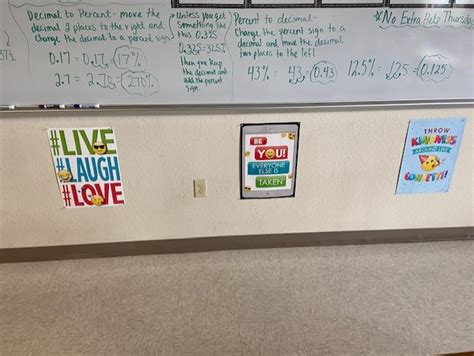 Decimal to Percent - move the
decimal 2 places to the right and
change the decimal to a percent sign
0.17 = 0.17 = 17%
2.7 = 2.70 = 270%
Unless you get
something like
this 0.325
0.325 = 32.5%
then you keep
the decimal and
add the percent
sign.
Percent to decimal -
Change the percent sign to a
decimal and move the decimal
two places to the left
43% = 43. = 0.43
12.5% = 12.5 = 0.125
*No Extra Help Thursda
#LIVE
#LAUGH
#LOVE
BE
YOU!
EVERYONE
ELSE IS
TAKEN
THROW
KINDNESS
AROUND LIKE
CONFETTI!